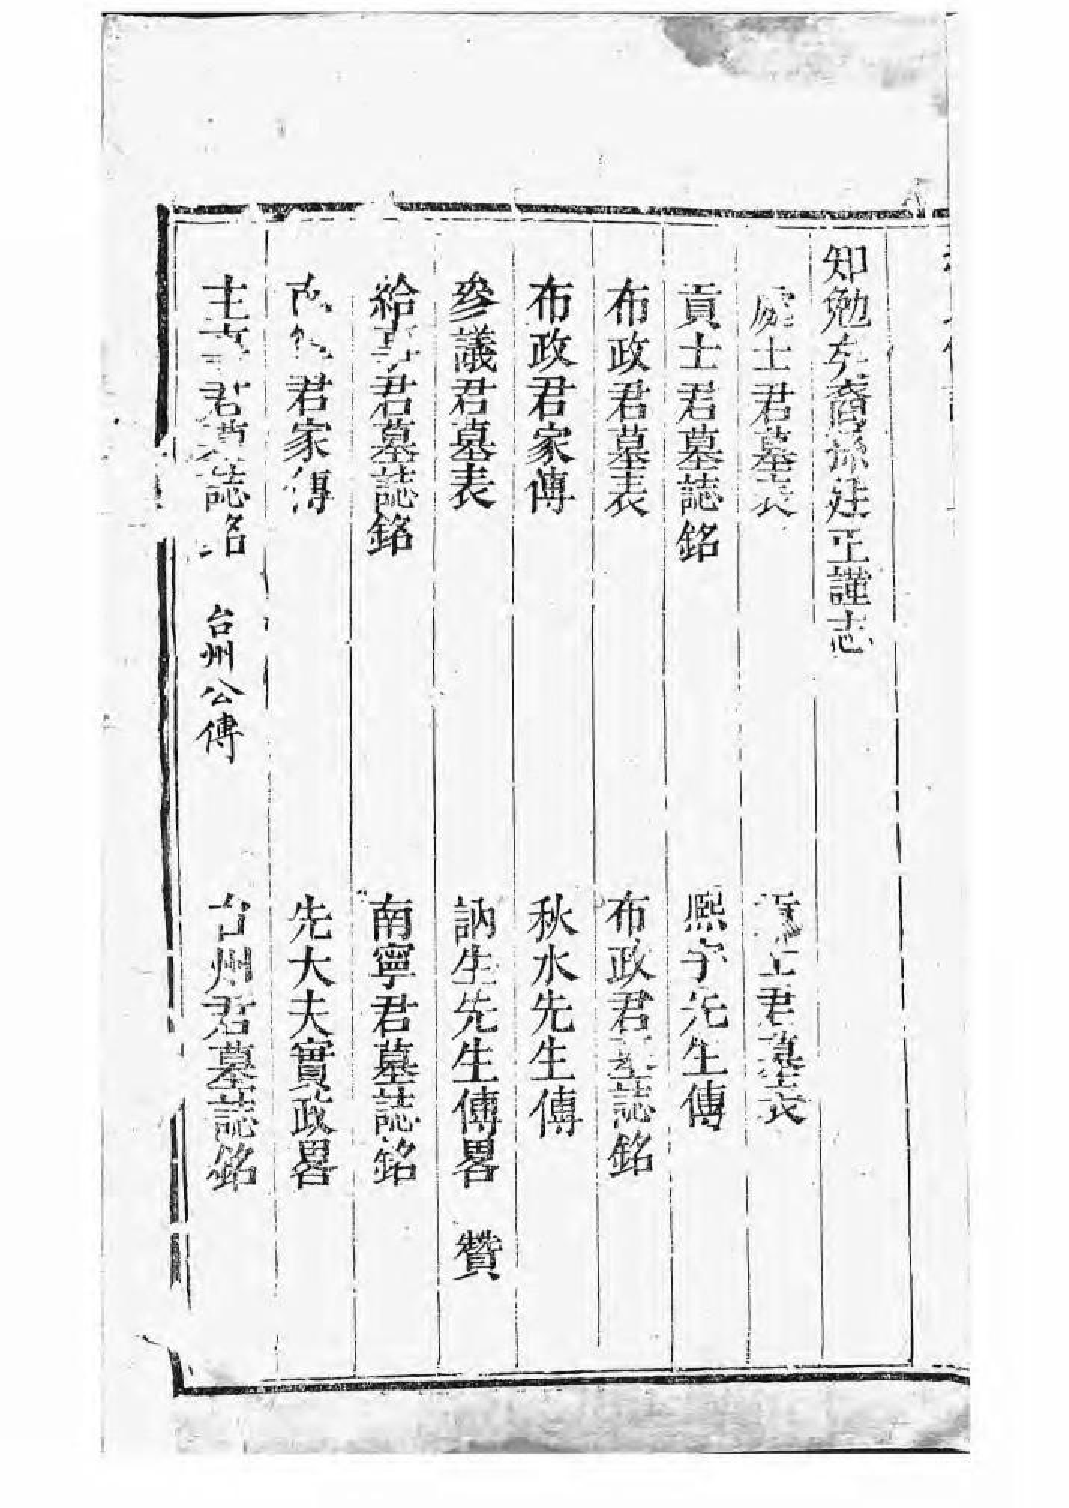 知勉矣裔孫廷正謹志
處士君墓表 士君墓表
貢士君墓誌銘 熙宇先生傳
布政君墓表 布政君墓誌銘
布政君家傳 秋水先生傳
參議君墓表 訥生先生傳畧 贊
給事君墓誌銘 南寧君墓誌銘
君家傳 先大夫實政畧
主事君墓誌銘 台州公傳 台州君墓誌銘